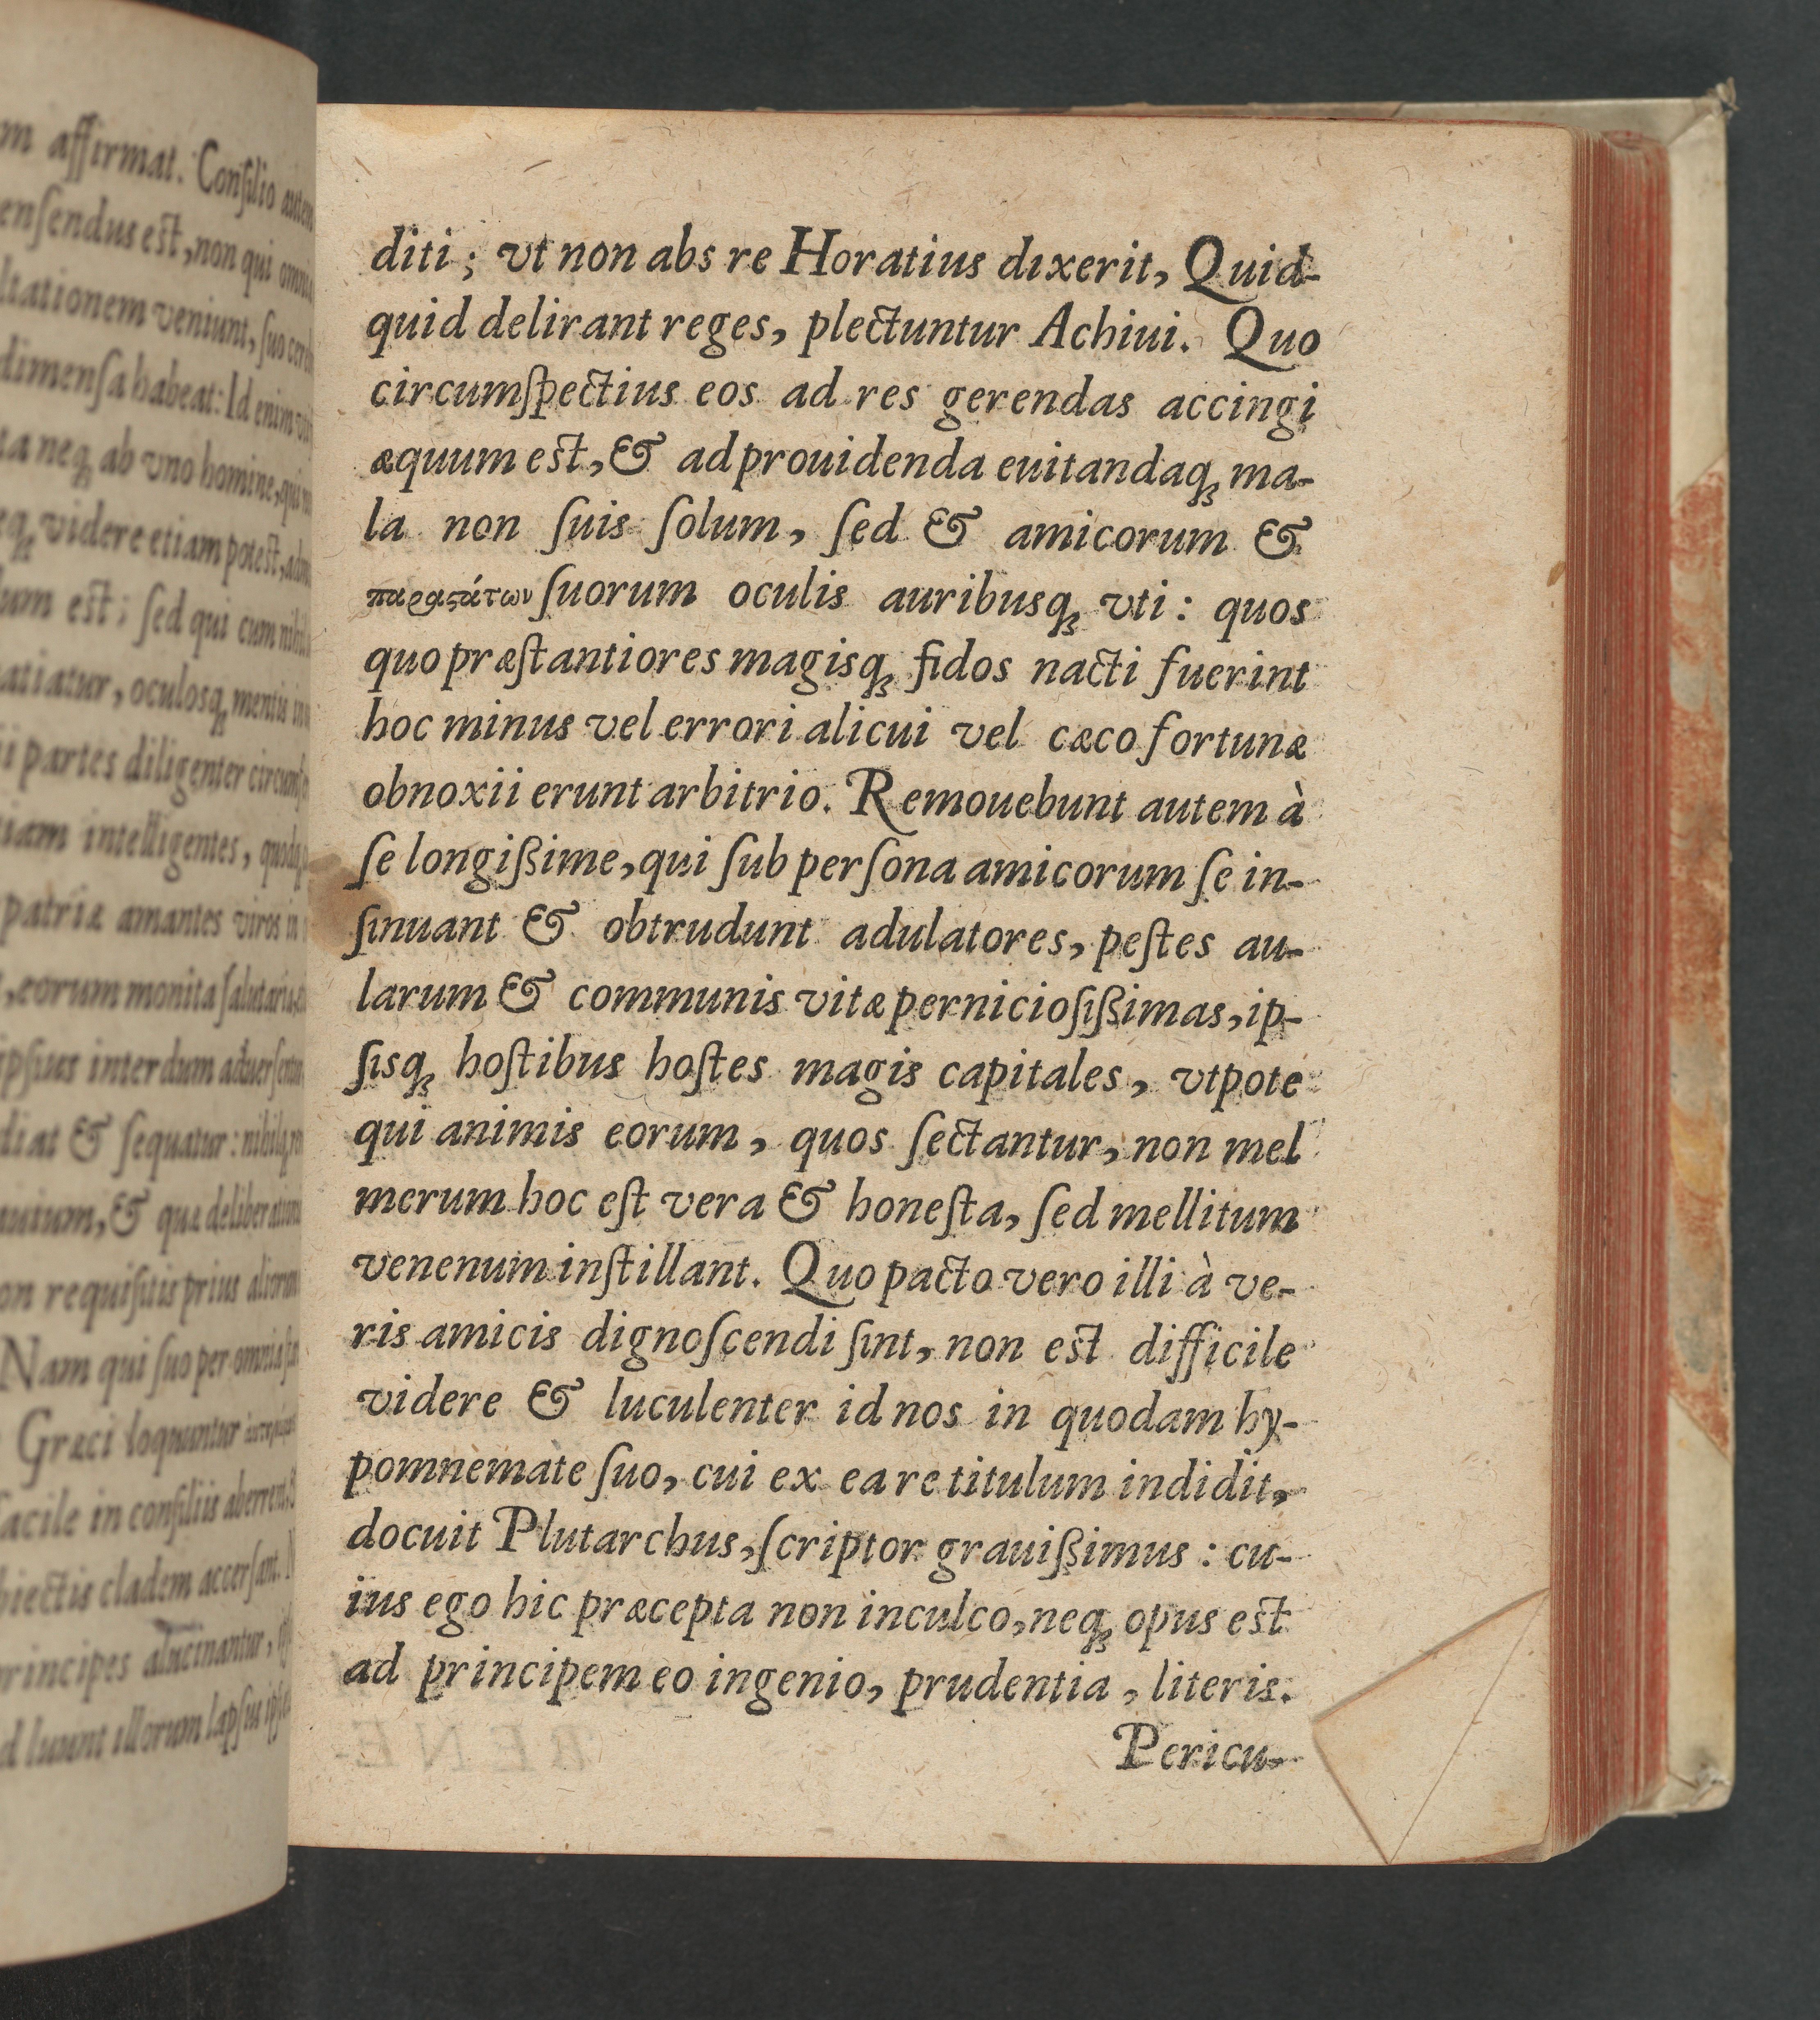 m affirmat. Conſilio autem
enſendus est, non qui omnia
ltationem veniunt, ſuo
dimenſa habeat: Id enim
ta neq; ab vno homine, qui
eq; videre etiam potest,
lum est; ſed qui cum nihil
atiatur, oculosq; mentis
ii partes diligenter
iam intelligentes,
patriæ amantes viros in
, eorum monita ſalutaria
ipſius interdum
diat & ſequatur: nihil
autum, & quæ
on requiſitis prius
Nam qui ſuo per omnia
Græci loquuntur
facile in conſiliis
biectis cladem accerſant.
rincipes alucinantur,
d luunt illorum lapſus
diti; vt non abs re Horatius dixerit, Quid-
quid delirant reges, plectuntur Achiui. Quo
circumſpectius eos ad res gerendas accingi
æquum est, & ad prouidenda euitandaq; ma-
la non ſuis ſolum, ſed & amicorum &
παραςάτων ſuorum oculis auribusq; vti: quos
quo præſtantiores magisq; fidos nacti fuerint
hoc minus vel errori alicui vel cæco fortunæ
obnoxii erunt arbitrio. Remouebunt autem à
ſe longißime, qui ſub perſona amicorum ſe in-
ſinuant & obtrudunt adulatores, peſtes au-
larum & communis vitæ pernicioſißimas, ip-
ſisq; hoſtibus hoſtes magis capitales, vtpote
qui animis eorum, quos ſectantur, non mel
merum hoc eſt vera & honeſta, ſed mellitum
venenum inſtillant. Quo pacto vero illi à ve-
ris amicis dignoſcendi ſint, non est difficile
videre & luculenter id nos in quodam hy-
pomnemate ſuo, cui ex ea re titulum indidit,
docuit Plutarchus, ſcriptor grauißimus: cu-
ius ego hic præcepta non inculco, neq; opus est
ad principem eo ingenio, prudentia, literis.
Pericu-